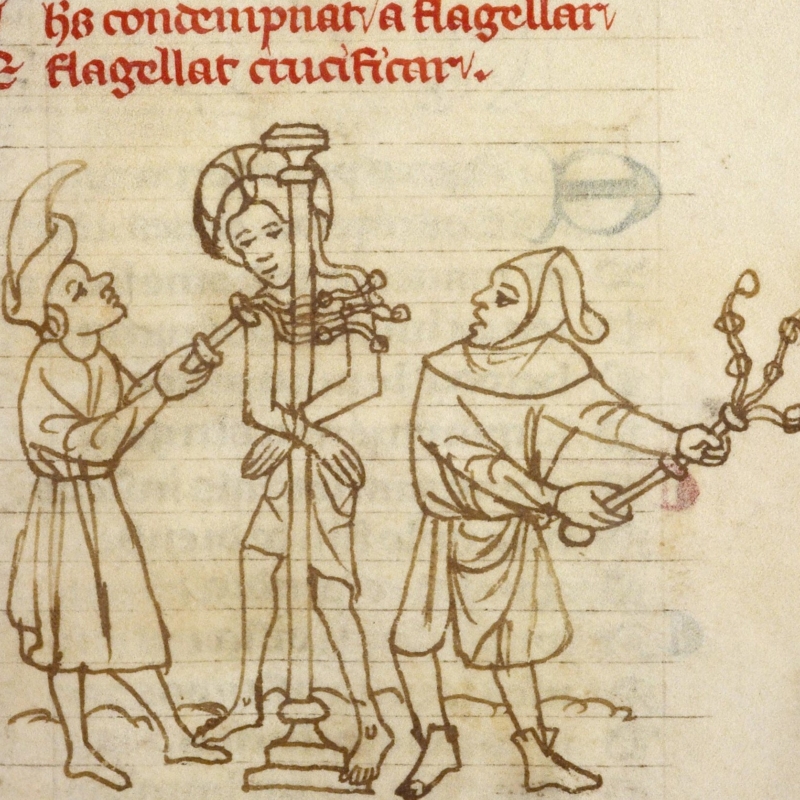 hs condempnat᷑ a flagellar᷑
& flagellat crucificar᷑.